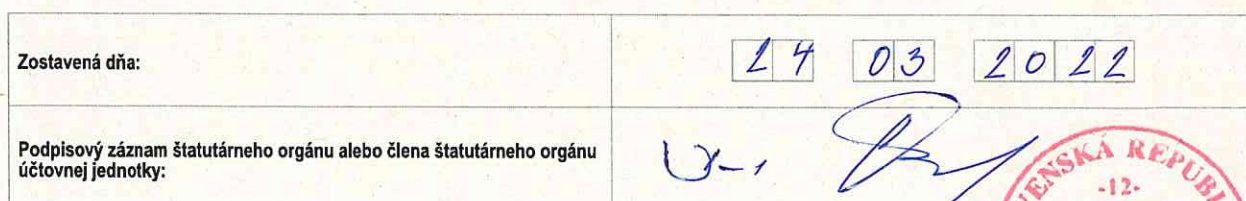 Zostavená dňa:
24 03 2022
Podpisový záznam štatutárneho orgánu alebo člena štatutárneho orgánu
účtovnej jednotky:
ENSKÁ REPUBLI
-12-